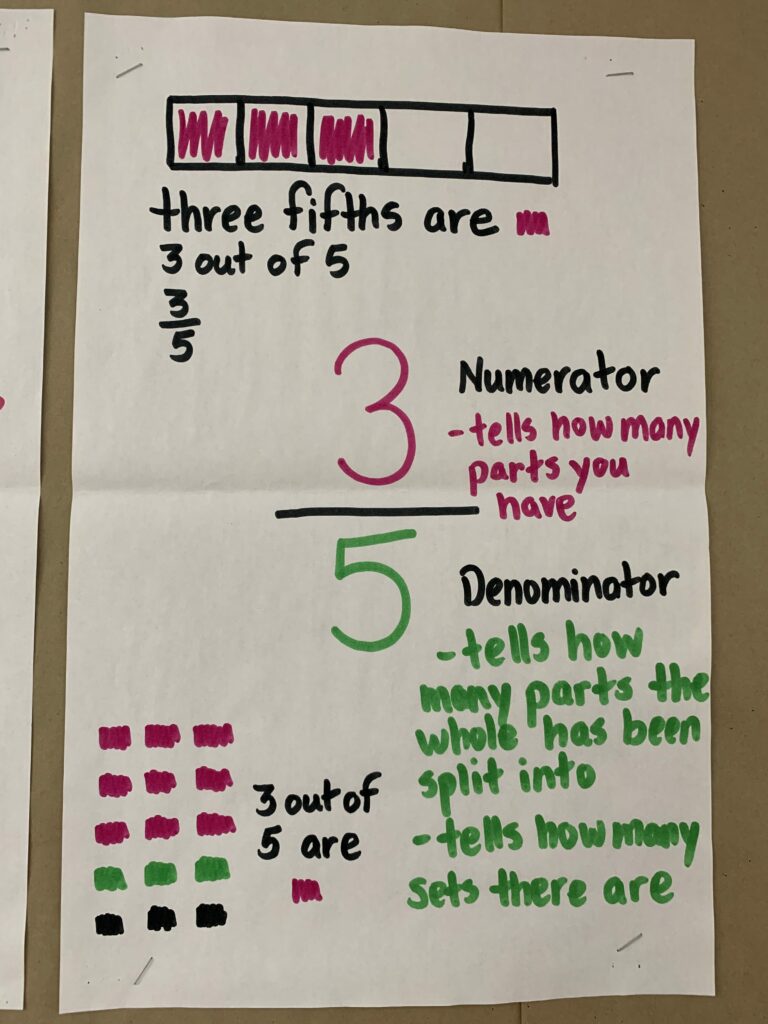 three fifths are
3 out of 5
3
5
3
5
Numerator
-tells how many
parts you
have
Denominator
-tells how
many parts the
whole has been
split into
-tells how many
sets there are
3 out of
5 are